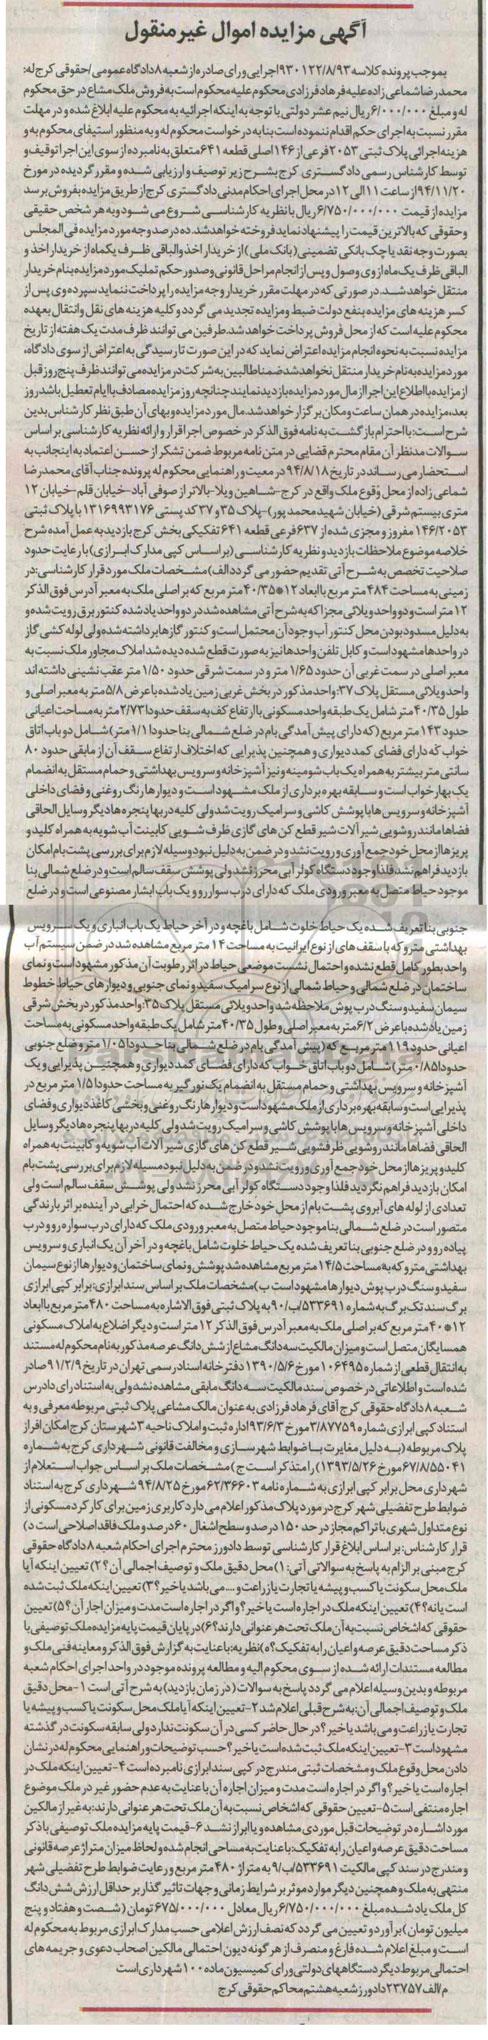 آگهی مزایده اموال غیرمنقول
بموجب پرونده کلاسه ۹۳۰۱۲۲/۸/۹۳ اجرایی و رای صادره از شعبه ۸ دادگاه عمومی/حقوقی کرج له:
محمدرضا شماعی زاده علیه فرهاد فرزادی محکوم علیه محکوم است به فروش ملک مشاع در حق محکوم
له و مبلغ ۶/۰۰۰/۰۰۰ ریال نیم عشر دولتی با توجه به اینکه اجرائیه به محکوم علیه ابلاغ شده و در مهلت
مقرر نسبت به اجرای حکم اقدام ننموده است بنابه درخواست محکوم له و به منظور استیفای محکوم به و
هزینه اجرائی پلاک ثبتی ۲۰۵۳ فرعی از ۱۴۶ اصلی قطعه ۶۴۱ متعلق به نامبرده از سوی این اجرا توقیف و
توسط کارشناس رسمی دادگستری کرج بشرح زیر توصیف و ارزیابی شده و مقرر گردیده در مورخ
۹۴/۱۱/۲۰ از ساعت ۱۱ الی ۱۲ در محل اجرای احکام مدنی دادگستری کرج از طریق مزایده بفروش برسد
مزایده از قیمت ۶/۷۵۰/۰۰۰/۰۰۰ ریال با نظریه کارشناسی شروع می شود و به هر شخص حقیقی
وحقوقی که بالاترین قیمت را پیشنهاد نماید فروخته خواهد شد. ده درصد وجه مورد مزایده فی المجلس
بصورت وجه نقد یا چک بانکی تضمینی (بانک ملی) از خریدار اخذ والباقی ظرف یکماه از خریدار اخذ و
الباقی ظرف یک ماه از وی وصول و پس از انجام مراحل قانونی و صدور حکم تملیک مورد مزایده بنام خریدار
منتقل خواهد شد. در صورتی که در مهلت مقرر خریدار وجه مزایده را پرداخت ننماید سپرده وی پس از
کسر هزینه های مزایده بنفع دولت ضبط و مزایده تجدید می گردد و کلیه هزینه های نقل وانتقال بعهده
محکوم علیه است که از محل فروش پرداخت خواهد شد. طرفین می توانند ظرف مدت یک هفته از تاریخ
مزایده نسبت به نحوه انجام مزایده اعتراض نماید که در این صورت تا رسیدگی به اعتراض از سوی دادگاه،
مورد مزایده به نام خریدار منتقل نخواهد شد ضمنا طالبین به شرکت در مزایده می توانند ظرف پنج روز قبل
از مزایده با اطلاع این اجرا از مال مورد مزایده بازدید نمایند چنانچه روز مزایده مصادف با ایام تعطیل باشد روز
بعد، مزایده در همان ساعت و مکان برگزار خواهد شد. مال مورد مزایده و بهای آن طبق نظر کارشناس بدین
شرح است: با احترام بازگشت به نامه فوق الذکر در خصوص اجرا قرار و ارائه نظریه کارشناسی بر اساس
سوالات مدنظر آن مقام محترم قضایی در متن نامه مربوط ضمن تشکر از حسن اعتماد به اینجانب به
استحضار می رساند در تاریخ ۹۴/۸/۱۸ در معیت و راهنمایی محکوم له پرونده جناب آقای محمدرضا
شماعی زاده از محل وقوع ملک واقع در کرج-شاهین ویلا-بالاتر از صوفی آباد-خیابان قلم-خیابان ۱۲
متری بیستم شرقی (خیابان شهید محمدپور)-پلاک ۳۵ و ۳۷ کد پستی ۱۳۱۶۹۹۳۱۷۶ با پلاک ثبتی
۱۴۶/۲۰۵۳ مفروز و مجزی شده از ۶۳۷ فرعی قطعه ۶۴۱ تفکیکی بخش کرج بازدید به عمل آمده شرح
خلاصه موضوع ملاحظات بازدید و نظریه کارشناسی (بر اساس کپی مدارک ابرازی) با رعایت حدود
صلاحیت تخصص به شرح آتی تقدیم حضور می گردد الف) مشخصات ملک مورد قرار کارشناسی: در
زمینی به مساحت ۴۸۴ متر مربع با ابعاد ۱۲*۴۰/۳۵ متر مربع که بر اصلی ملک به معبر آدرس فوق الذکر
۱۲ متر است و دو واحد ویلائی مجزا که به شرح آتی مشاهده شد در دو واحد یاد شده کنتور برق رویت شده و
به دلیل مسدود بودن محل کنتور آب وجود آن محتمل است و کنتور گازها برداشته شده ولی لوله کشی گاز
در واحدها مشهود است و کابل تلفن واحدها نیز به صورت قطع شده دیده شد املاک مجاور ملک نسبت به
معبر اصلی در سمت غربی آن حدود ۱/۶۵ متر و در سمت شرقی حدود ۱/۵۰ متر عقب نشینی داشته اند
واحد ویلائی مستقل پلاک ۳۷: واحد مذکور در بخش غربی زمین یاد شده با عرض ۵/۸ متر به معبر اصلی و
طول ۴۰/۳۵ متر شامل یک طبقه واحد مسکونی با ارتفاع کف به سقف حدود ۲/۷۳ متر به مساحت اعیانی
حدود ۱۴۳ متر مربع (که دارای پیش آمدگی بام در ضلع شمالی بنا حدود ۱/۱ متر) شامل دو باب اتاق
خواب که دارای فضای کمد دیواری و همچنین پذیرایی که اختلاف ارتفاع سقف آن از مابقی حدود ۸۰
سانتی متر بیشتر به همراه یک باب شومینه و نیز آشپزخانه و سرویس بهداشتی و حمام مستقل به انضمام
یک بهارخواب است و سابقه بهره برداری از ملک مشهود است و دیوارها رنگ روغنی و فضای داخلی
آشپزخانه و سرویس ها با پوشش کاشی و سرامیک رویت شد ولی کلیه درب ها پنجره ها دیگر وسایل الحاقی
فضاها مانند روشویی شیرآلات شیر قطع کن های گازی ظرف شویی کابینت آب شویه به همراه کلید و
پریزها از محل خود جمع آوری و رویت نشد و در ضمن به دلیل نبود وسیله لازم برای بررسی پشت بام امکان
بازدید فراهم نشد فلذا وجود دستگاه کولر آبی محرز نشد ولی پوشش سقف سالم است و در ضلع شمالی بنا
موجود حیاط متصل به معبر ورودی ملک که دارای درب سوار رو و یک باب ابشار مصنوعی است و در ضلع
جنوبی بنا تعریف شده یک حیاط خلوت شامل باغچه و در آخر حیاط یک باب انباری و یک سرویس
بهداشتی متروکه با سقف های از نوع ایرانیت به مساحت ۱۴ متر مربع مشاهده شد در ضمن سیستم آب
واحد بطور کامل قطع نشده و احتمال نشست موضعی حیاط در اثر رطوبت آن مذکور مشهود است و نمای
ساختمان در ضلع شمالی و حیاط شمالی از نوع سرامیک سفید و نمای جنوبی و دیوارهای حیاط خطوط
سیمان سفید و سنگ درب پوش ملاحظه شد واحد ویلائی مستقل پلاک ۳۵: واحد مذکور در بخش شرقی
زمین یاد شده با عرض ۶/۲ متر به معبر اصلی و طول ۴۰/۳۵ متر شامل یک طبقه واحد مسکونی به مساحت
اعیانی حدود ۱۱۹ متر مربع که (پیش آمدگی بام در ضلع شمالی بنا حدود ۱/۰۵ متر و ضلع جنوبی
حدود ۰/۸۵ متر) شامل دو باب اتاق خواب که دارای فضای کمد دیواری و همچنین پذیرایی و یک
آشپزخانه و سرویس بهداشتی و حمام مستقل به انضمام یک نورگیر به مساحت حدود ۱/۵ متر مربع در
پذیرایی است و سابقه بهره برداری از ملک مشهود است و دیوارها رنگ روغنی و بخشی کاغذ دیواری و فضای
داخلی آشپزخانه و سرویس ها با پوشش کاشی و سرامیک رویت شد ولی کلیه درب ها پنجره ها دیگر وسایل
الحاقی فضاها مانند روشویی ظرفشویی شیر قطع کن های گازی شیر آلات آب شویه و کابینت به همراه
کلید و پریزها از محل خود جمع آوری و رویت نشد و در ضمن به دلیل نبود وسیله لازم برای بررسی پشت بام
امکان بازدید فراهم نگردید فلذا وجود دستگاه کولر آبی محرز نشد ولی پوشش سقف سالم است ولی
تعدادی از لوله های آبروی پشت بام از محل خود خارج شده که احتمال خرابی در آینده بر اثر بارندگی
متصور است در ضلع شمالی بنا موجود حیاط متصل به معبر ورودی ملک که دارای درب سواره رو و درب
پیاده رو و در ضلع جنوبی بنا تعریف شده یک حیاط خلوت شامل باغچه و در آخر آن یک انباری و سرویس
بهداشتی متروکه به مساحت ۱۴/۵ متر مربع مشاهده شد پوشش و نمای ساختمان و دیوارها از نوع سیمان
سفید و سنگ درب پوش دیوارها مشهود است ب) مشخصات ملک بر اساس سند ابرازی: برابر کپی ابرازی
برگ سند تک برگ به شماره ۵۳۳۶۹۱/ب/۹۰ به پلاک ثبتی فوق الاشاره به مساحت ۴۸۰ متر مربع با ابعاد
۱۲*۴۰ متر مربع که بر اصلی ملک به معبر آدرس فوق الذکر ۱۲ متر است و دیگر اضلاع به املاک مسکونی
همسایگان متصل است و میزان مالکیت سه دانگ مشاع از شش دانگ عرصه مذکور به نام محکوم له مستند
به انتقال قطعی از شماره ۱۰۶۴۹۵ مورخ ۱۳۹۰/۵/۶ دفترخانه اسناد رسمی تهران در تاریخ ۹۱/۲/۹ صادر
شده است و اطلاعاتی در خصوص سند مالکیت سه دانگ مابقی مشاهده نشد ولی به استناد رای دادرس
شعبه ۸ دادگاه حقوقی کرج آقای فرهاد فرزادی به عنوان مالک مشاعی پلاک ثبتی مربوطه معرفی و به
استناد کپی ابرازی شماره ۳/۸۷۷۵۹ مورخ ۹۳/۶/۳ اداره ثبت و املاک ناحیه ۳ شهرستان کرج امکان افراز
پلاک مربوطه (به دلیل مغایرت با ضوابط شهرسازی و مخالفت قانونی شهرداری کرج به شماره
۶۷/۸/۵۵۰۴۱ مورخ ۱۳۹۳/۵/۲۶) را متذکر است ج) مشخصات ملک بر اساس جواب استعلام از
شهرداری محل برابر کپی ابرازی به شماره نامه ۶۲/۳۶۶۰۳ مورخ ۹۴/۸/۲۵ شهرداری کرج به استناد
ضوابط طرح تفضیلی شهر کرج در مورد پلاک مذکور اعلام می دارد کاربری زمین برای کارکرد مسکونی از
نوع متداول شهری با تراکم مجاز در حد ۱۵۰ درصد و سطح اشغال ۶۰ درصد و ملک فاقد اصلاحی است د)
قرار کارشناس: بر اساس ابلاغ قرار کارشناسی توسط دادورز محترم اجرای احکام شعبه ۸ دادگاه حقوقی
کرج مبنی بر الزام به پاسخ به سوالاتی آتی: ۱) محل دقیق ملک و توصیف اجمالی آن؟ ۲) تعیین اینکه آیا
ملک محل سکونت یا کسب و پیشه یا تجارت یا زراعت و ... می باشد یا خیر؟ ۳) تعیین اینکه ملک ثبت شده
است یا نه؟ ۴) تعیین اینکه ملک در اجاره است یا خیر؟ و اگر در اجاره است مدت و میزان اجار آن؟ ۵) تعیین
حقوقی که اشخاص نسبت به آن ملک تحت هر عنوانی دارند؟ ۶) در پایان قیمت پایه مزایده ملک توصیفی با
ذکر مساحت دقیق عرصه و اعیان را به تفکیک؟ ه) نظریه: با عنایت به گزارش فوق الذکر و معاینه فنی ملک و
مطالعه مستندات ارائه شده از سوی محکوم الیه و مطالعه پرونده موجود در واحد اجرای احکام شعبه
مربوطه و بدین وسیله اعلام می گردد پاسخ به سوالات (در زمان بازدید) به شرح آتی است ۱- محل دقیق
ملک و توصیف اجمالی آن: به شرح قبلی اعلام شد ۲- تعیین اینکه آیا ملک محل سکونت یا کسب و پیشه یا
تجارت یا زراعت و می باشد یا خیر؟ در حال حاضر کسی در آن سکونت ندارد ولی سابقه سکونت در گذشته
مشهود است ۳- تعیین اینکه ملک ثبت شده است یا خیر؟ حسب توضیحات و راهنمایی محکوم له در نشان
دادن محل وقوع ملک و مشخصات ثبتی مندرج در کپی سند ابرازی نامبرده است ۴- تعیین اینکه ملک در
اجاره است یا خیر؟ و اگر در اجاره است مدت و میزان اجاره آن با عنایت به عدم حضور غیر در ملک موضوع
اجاره منتفی است ۵- تعیین حقوقی که اشخاص نسبت به آن ملک تحت هر عنوانی دارند: به غیر از مالکین
مورد اشاره در توضیحات قبل موردی مشاهده و یا ابراز نشد ۶- قیمت پایه مزایده ملک توصیفی با ذکر
مساحت دقیق عرصه و اعیان را به تفکیک: با عنایت به مساحی انجام شده و لحاظ میزان متراژ عرصه قانونی
و مندرج در سند کپی مالکیت ۵۳۳۶۹۱/ب/۹ به متراژ ۴۸۰ متر مربع و رعایت ضوابط طرح تفضیلی شهر
منتهی به ملک و همچنین دیگر موارد موثر بر شرایط زمانی و جهات تاثیر گذار بر حداقل ارزش شش دانگ
کل ملک یاد شده مبلغ ۶/۷۵۰/۰۰۰/۰۰۰ ریال معادل ۶۷۵/۰۰۰/۰۰۰ تومان (ششصد و هفتاد و پنج
میلیون تومان) برآورد و تعیین می گردد که نصف ارزش اعلامی حسب مدارک ابرازی مربوط به محکوم له
است و مبلغ اعلام شده فارغ و منصرف از هرگونه دیون احتمالی مالکین اصحاب دعوی و جریمه های
احتمالی مربوط دیگر دستگاههای دولتی و رای کمیسیون ماده ۱۰۰ شهرداری است
م/الف ۲۳۷۵۷ دادورز شعبه هشتم محاکم حقوقی کرج